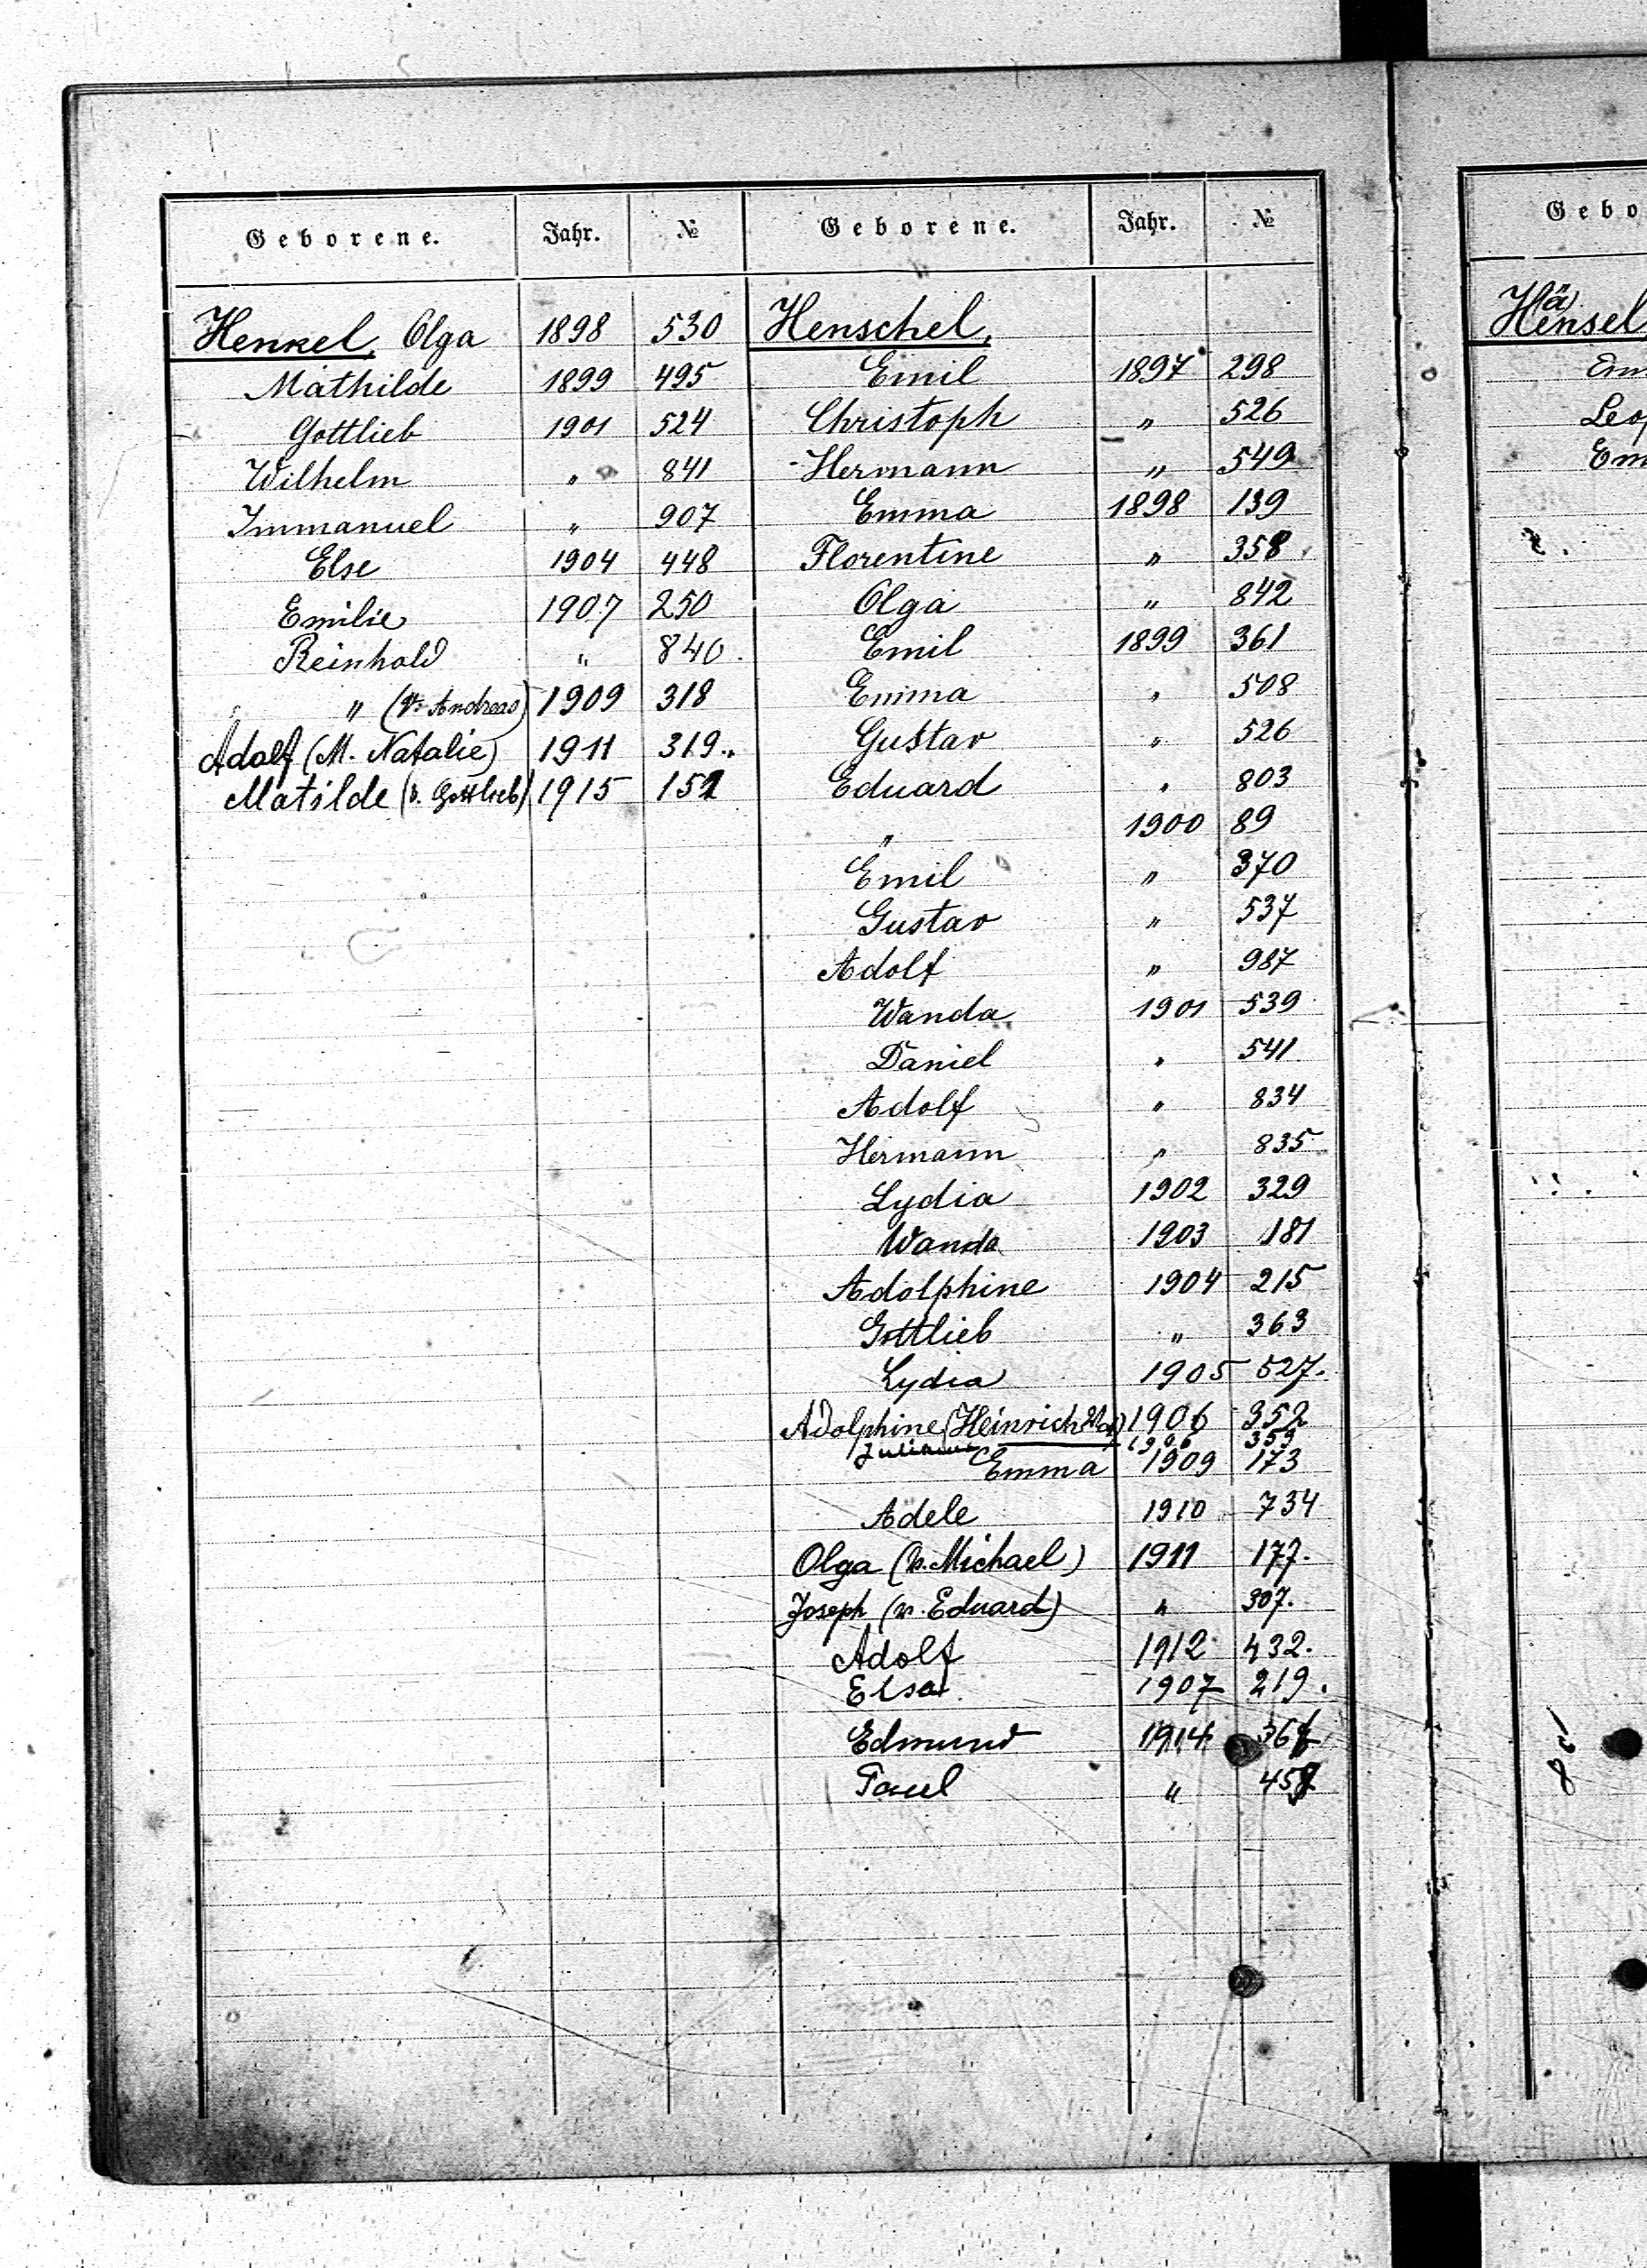 Geborene. Jahr. №
Henkel, Olga 1898 530
Mathilde 1899 495
Gottlieb 1901 524
Wilhelm " 841
Immanuel " 907
Else 1904 448
Emilie 1907 250
Reinhold " 840.
" (V. Andreas) 1909 318
Adolf (M. Natalie) 1911 319.
Matilde (v. Gottlieb) 1915 152
Geborene. Jahr. №
Henschel,
Emil 1897 298
Christoph " 526
Hermann " 549
Emma 1898 139
Florentine " 358
Olga " 842
Emil 1899 361
Emma " 508
Gustav " 526
Eduard " 803
" 1900 89
Emil " 370
Gustav " 537
Adolf " 987
Wanda 1901 539
Daniel " 541
Adolf " 834
Hermann " 835
Lydia 1902 329
Wanda 1903 181
Adolphine 1904 215
Gottlieb " 363
Lydia 1905 527.
Adolphine (Heinrich 1906 352
1906 359
Emma 1909 173
Adele 1910 734
Olga (v. Michael) 1911 177.
Joseph (v. Eduard) " 307.
Adolf 1912 432.
Elsa 1907 219.
Edmund 1914
Paul "
Gebo
Hensel
Leop
Em